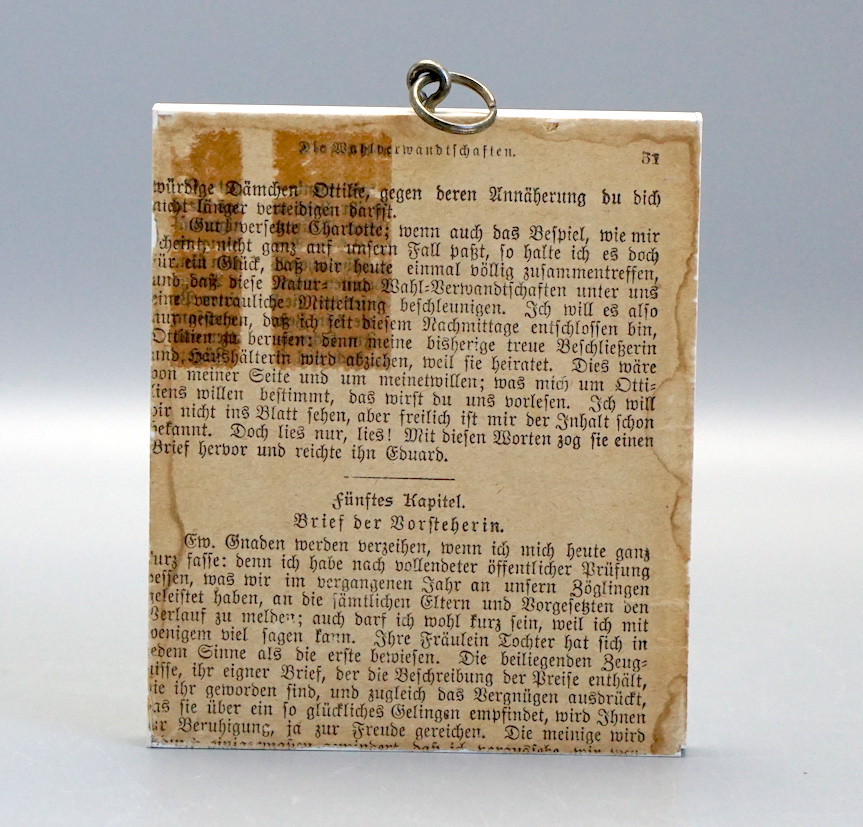 Die Wahlverwandtschaften. 31
würdige Dämchen Ottilie, gegen deren Annäherung du dich
nicht länger verteidigen darfst.
Gut! versetzte Charlotte; wenn auch das Beispiel, wie mir
scheint, nicht ganz auf unsern Fall paßt, so halte ich es doch
für ein Glück, daß wir heute einmal völlig zusammentreffen,
und daß diese Natur- und Wahl-Verwandtschaften unter uns
eine vertrauliche Mitteilung beschleunigen. Ich will es also
nur gestehen, daß ich seit diesem Nachmittage entschlossen bin,
Ottilien zu berufen: denn meine bisherige treue Beschließerin
und Haushälterin wird abziehen, weil sie heiratet. Dies wäre
von meiner Seite und um meinetwillen; was mich um Otti-
liens willen bestimmt, das wirst du uns vorlesen. Ich will
dir nicht ins Blatt sehen, aber freilich ist mir der Inhalt schon
bekannt. Doch lies nur, lies! Mit diesen Worten zog sie einen
Brief hervor und reichte ihn Eduard.
Fünftes Kapitel.
Brief der Vorsteherin.
Ew. Gnaden werden verzeihen, wenn ich mich heute ganz
kurz fasse: denn ich habe nach vollendeter öffentlicher Prüfung
dessen, was wir im vergangenen Jahr an unsern Zöglingen
geleistet haben, an die sämtlichen Eltern und Vorgesetzten den
Verlauf zu melden; auch darf ich wohl kurz sein, weil ich mit
wenigem viel sagen kann. Ihre Fräulein Tochter hat sich in
jedem Sinne als die erste bewiesen. Die beiliegenden Zeug-
nisse, ihr eigner Brief, der die Beschreibung der Preise enthält,
die ihr geworden sind, und zugleich das Vergnügen ausdrückt,
das sie über ein so glückliches Gelingen empfindet, wird Ihnen
zur Beruhigung, ja zur Freude gereichen. Die meinige wird